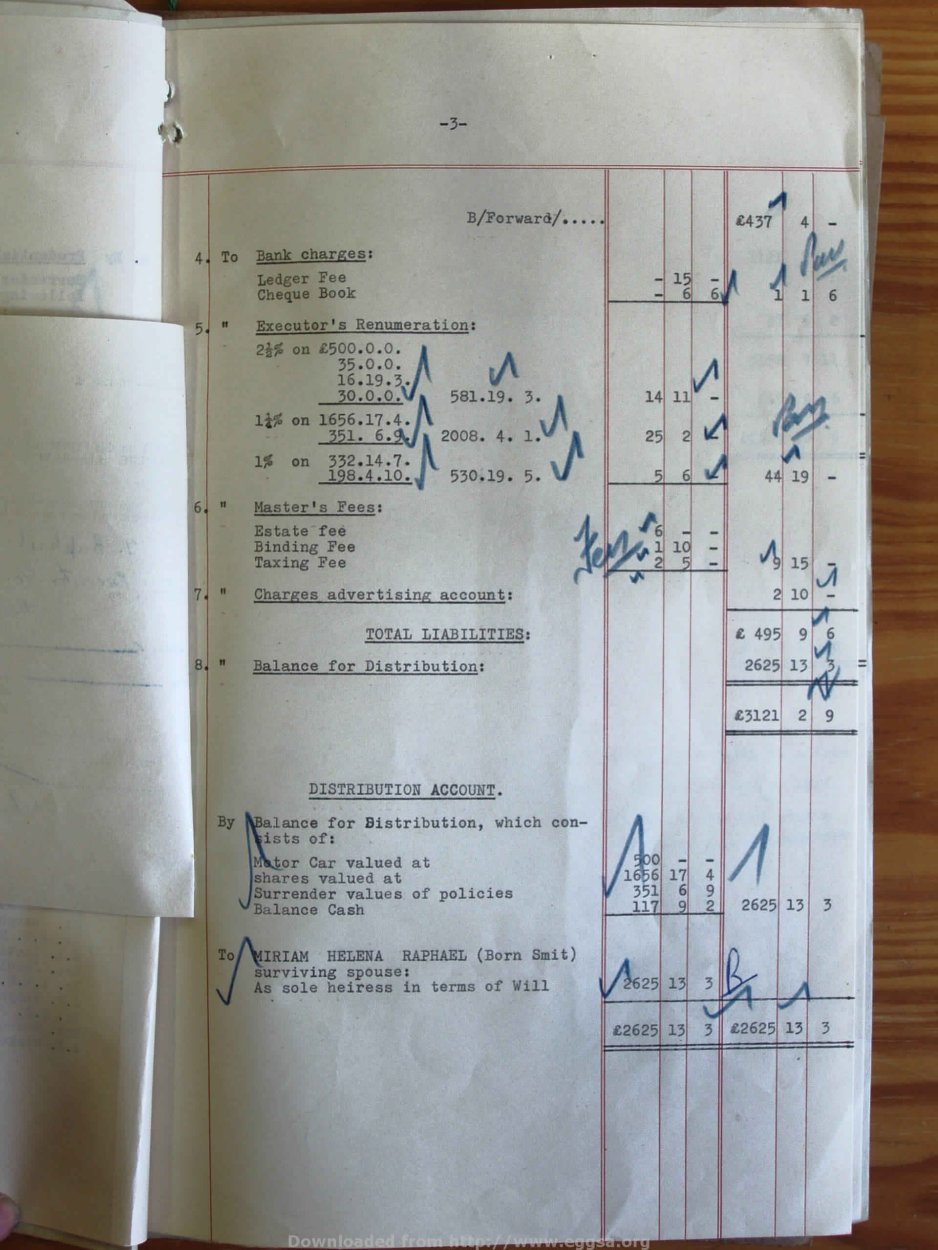 -3-
B/Forward/..... £437 4 -
4. To Bank charges:
Ledger Fee - 15 -
Cheque Book - 6 6 1 1 6
5. " Executor's Renumeration:
2½% on £500.0.0.
35.0.0.
16.19.3.
30.0.0. 581.19. 3. 14 11 -
1¼% on 1656.17.4.
351. 6.9. 2008. 4. 1. 25 2 -
1% on 332.14.7.
198.4.10. 530.19. 5. 5 6 - 44 19 -
6. " Master's Fees:
Estate fee 6 - -
Binding Fee 1 10 -
Taxing Fee 2 5 - 9 15 -
7. " Charges advertising account: 2 10 -
TOTAL LIABILITIES: £ 495 9 6
8. " Balance for Distribution: 2625 13 3 =
£3121 2 9
DISTRIBUTION ACCOUNT.
By Balance for Distribution, which con-
sists of:
Motor Car valued at 500 - -
shares valued at 1656 17 4
Surrender values of policies 351 6 9
Balance Cash 117 9 2 2625 13 3
To MIRIAM HELENA RAPHAEL (Born Smit)
surviving spouse:
As sole heiress in terms of Will 2625 13 3
£2625 13 3 £2625 13 3
Downloaded from http://www.eggsa.org